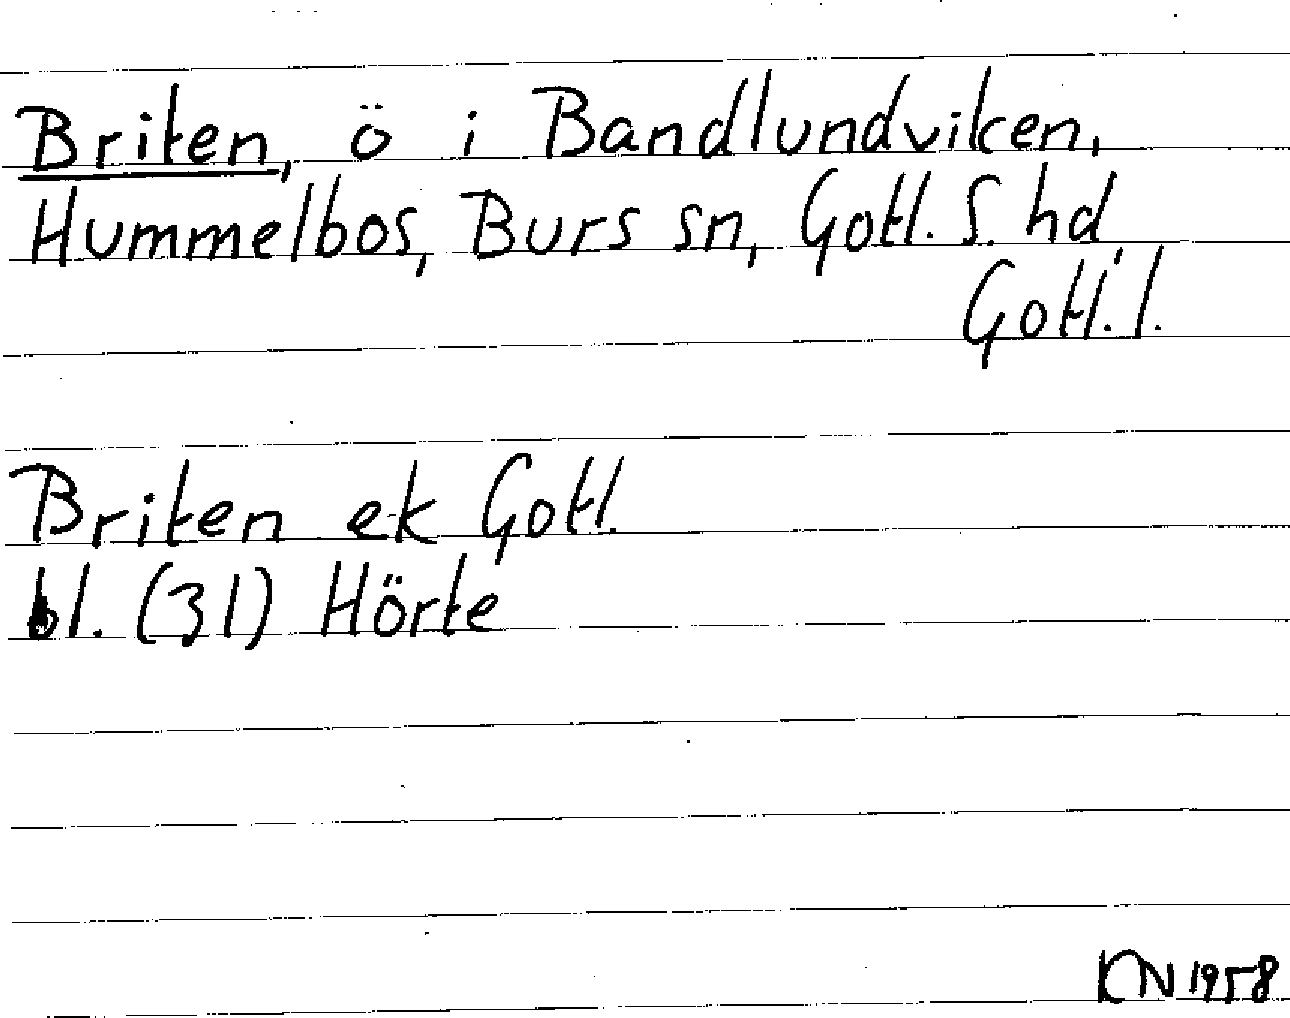 Briten, ö i Bandlundviken,
Hummelbos, Burs sn, Gotl. S. hd,
Gotl. l.
Briten ek Gotl.
bl. (31) Hörte
KN 1958